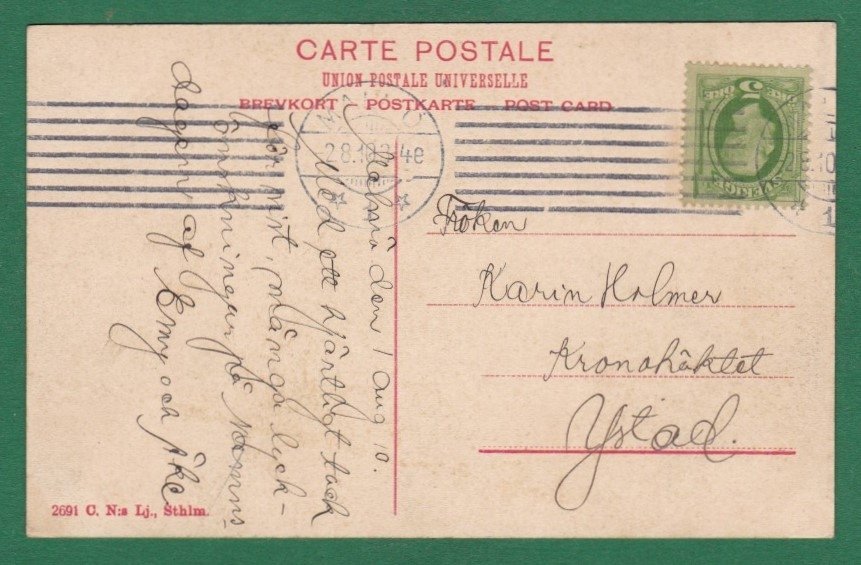 CARTE POSTALE
UNION POSTALE UNIVERSELLE
BREVKORT - POSTKARTE - POST CARD
2.8.10. 3-4e
Malmö den 1 aug 10.
Med ett hjärtligt tack
för sist, många lyck-
önskningar på namns-
dagen af Emy och Åke
Fröken
Karin Holmer
Kronohäktet
Ystad.
2691 C. N:s Lj., Sthlm.